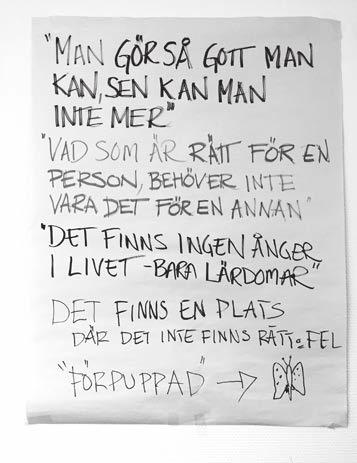 "MAN GÖR SÅ GOTT MAN
KAN, SEN KAN MAN
INTE MER"
"VAD SOM ÄR RÄTT FÖR EN
PERSON, BEHÖVER INTE
VARA DET FÖR EN ANNAN"
"DET FINNS INGEN ÅNGER
I LIVET - BARA LÄRDOMAR"
DET FINNS EN PLATS
DÄR DET INTE FINNS RÄTT o FEL
"FÖRPUPPAD" →